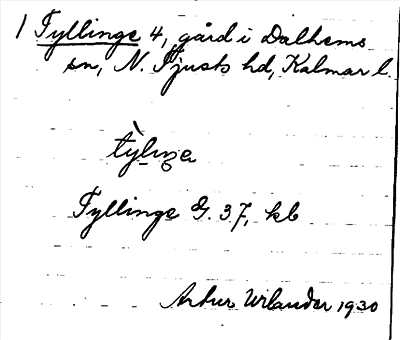 1 Tyllinge 4, gård i Dalhems
sn, N. Tjusts hd, Kalmar l.
Tyllinge G. 37, kb
Artur Urlander 1930